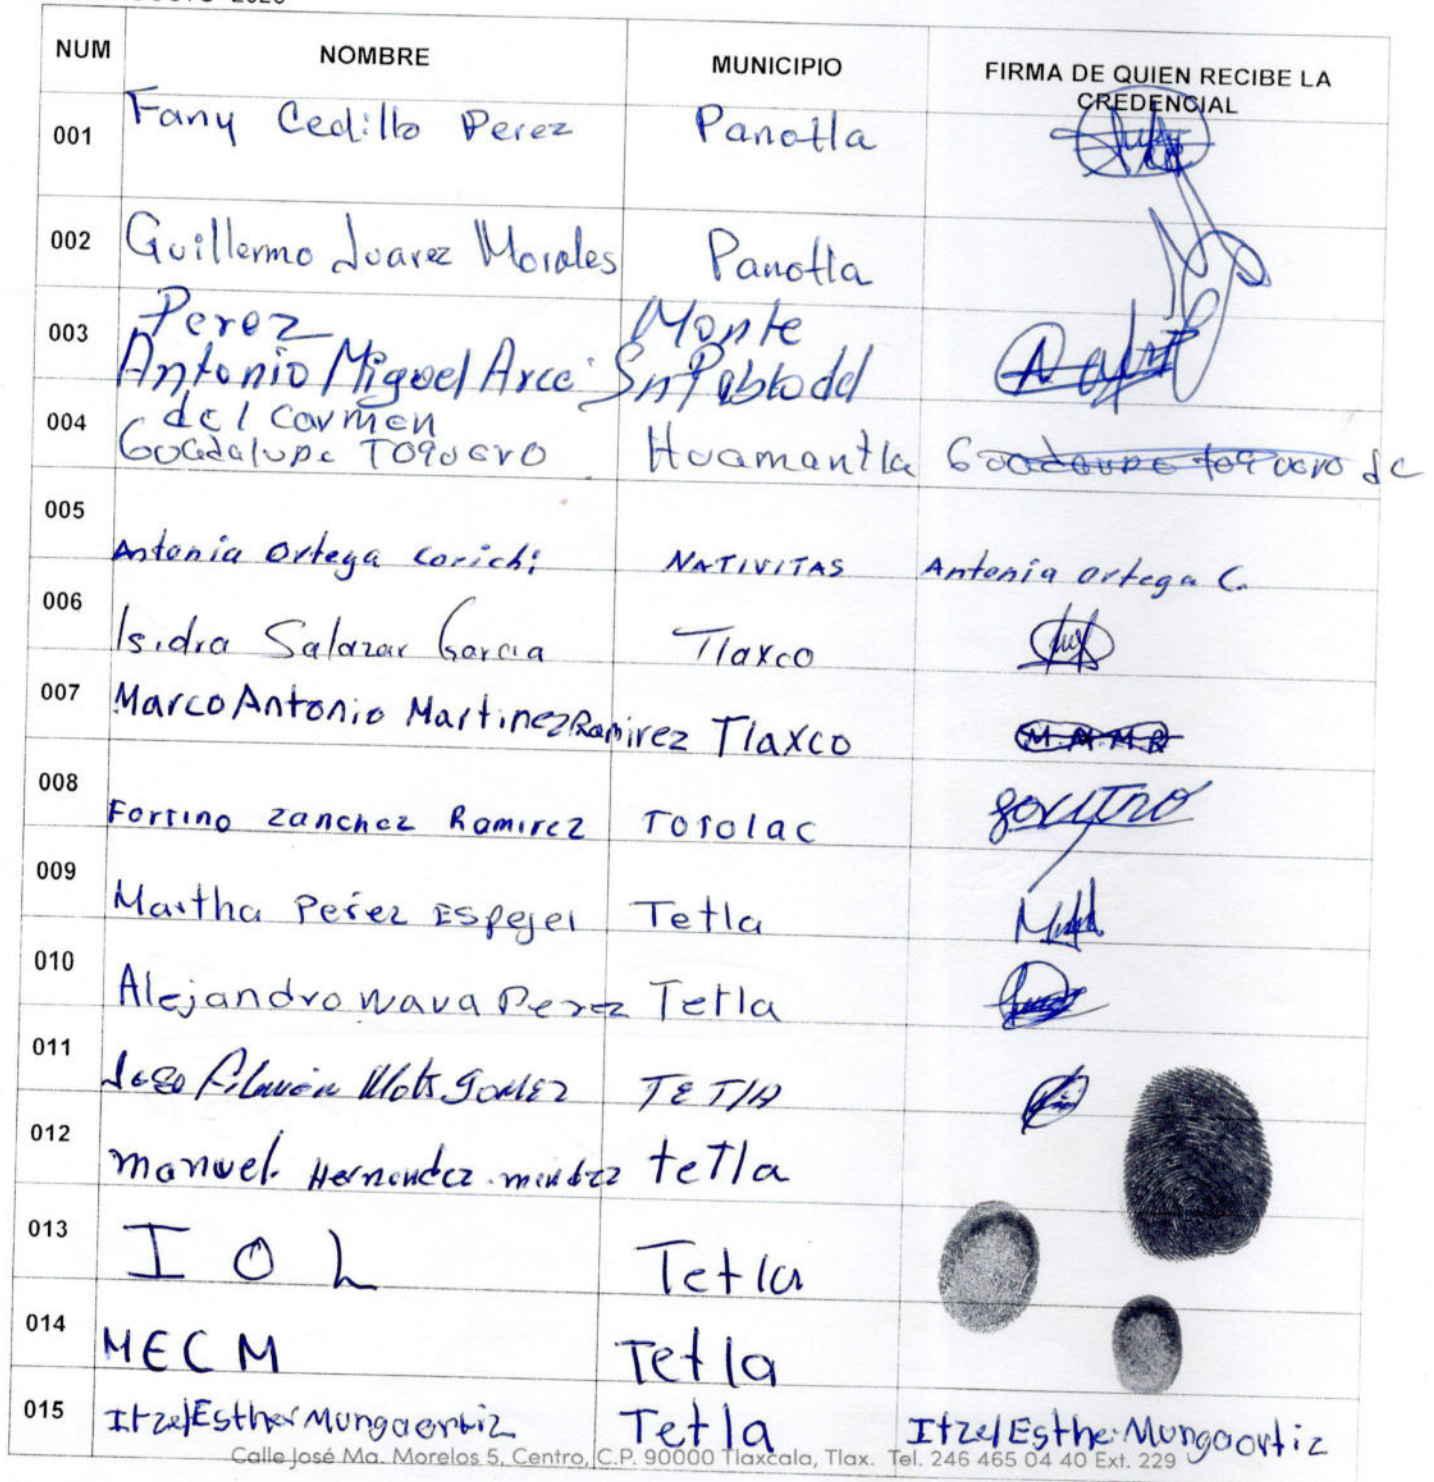 NUM NOMBRE MUNICIPIO FIRMA DE QUIEN RECIBE LA
CREDENCIAL
001 Fany Cedillo Perez Panotla
002 Guillermo Juarez Morales Panotla
003 Perez Monte
Antonio Miguel Arce Sn Pablo del
004 del Carmen
Guadalupe Toquero Huamantla
005 Antonia Ortega Corichi NATIVITAS Antonia Ortega C.
006 Isidra Salazar Garcia Tlaxco
007 Marco Antonio Martinez Ramirez Tlaxco M.A.M.R
008 Fortino Zanchez Ramirez Totolac
009 Martha Perez Espejel Tetla
010 Alejandro Nava Perez Tetla
011 TETlA
012 manuel Hernandez mendez teTla
013 I O L Tetla
014 MECM Tetla
015 Itzel Esther Mungaortiz Tetla Itzel Esther Mungaortiz
Calle José Ma. Morelos 5, Centro, C.P. 90000 Tlaxcala, Tlax. Tel. 246 465 04 40 Ext. 229